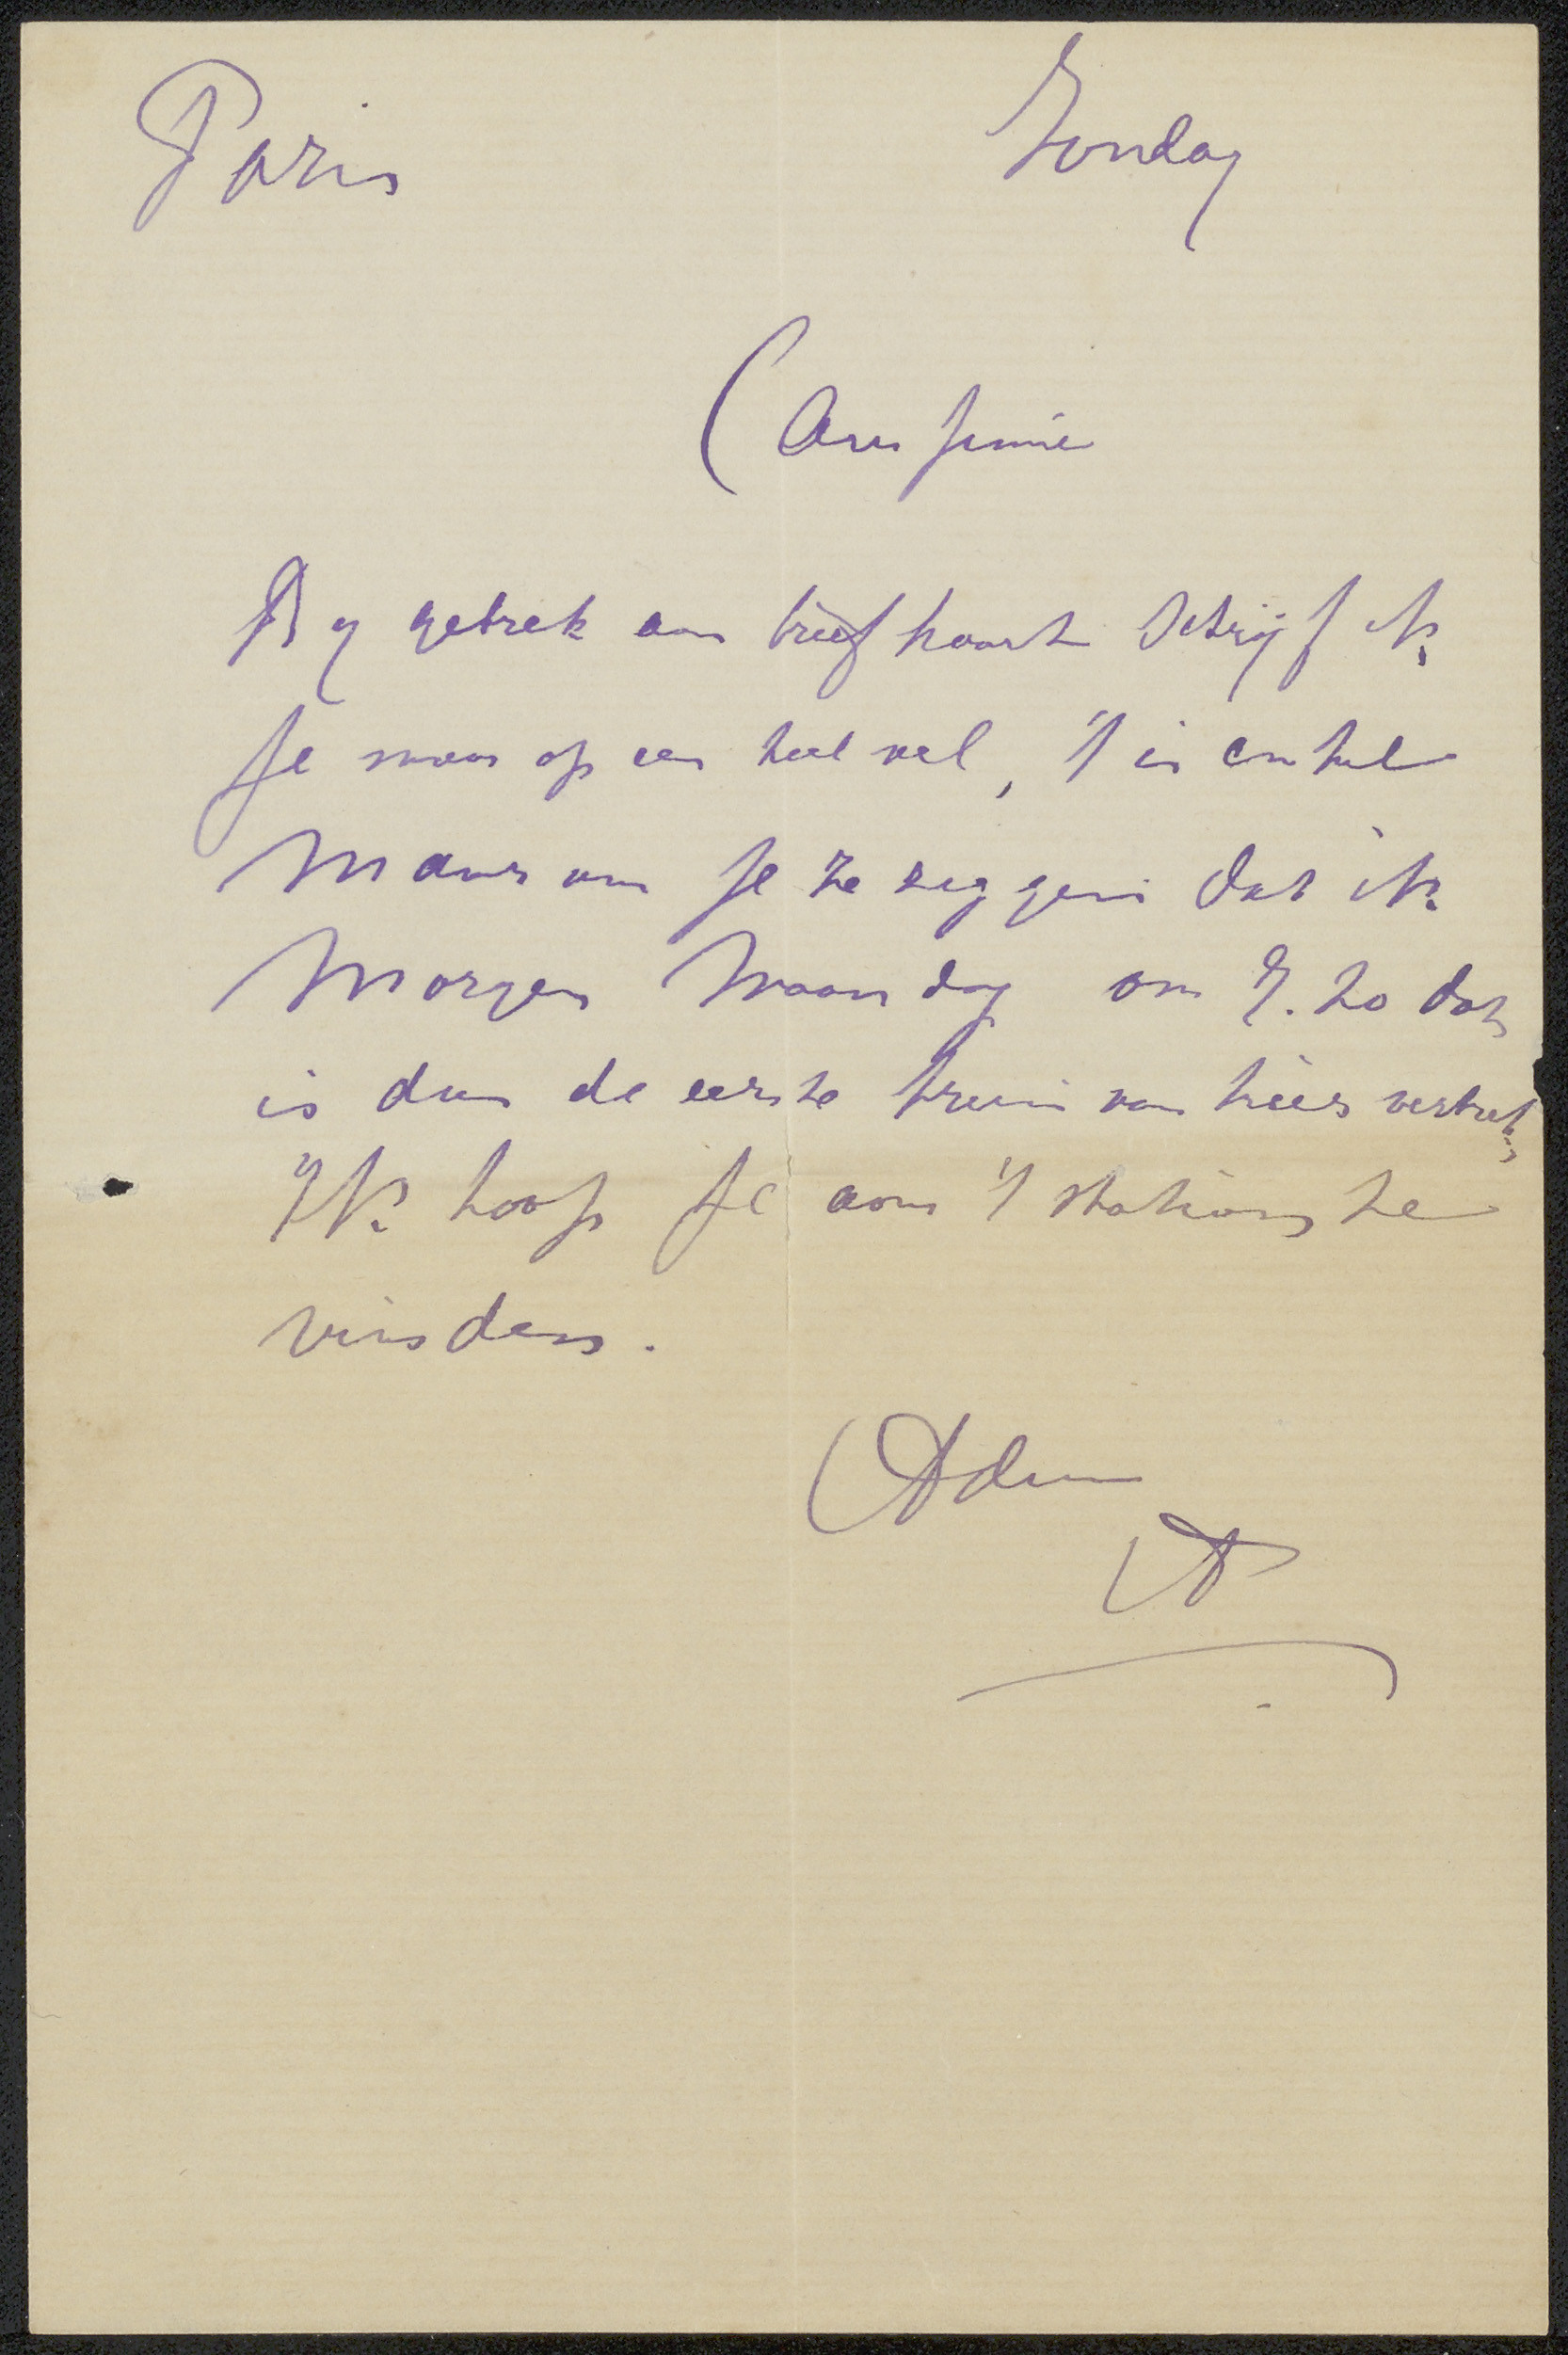 Paris
Zondag
Amu​​ssie
By gebrek aan briefkaart schrijf ik
je maar op een heel vel, 't is enkel
Maar om je te zeggen dat ik
Morgen Maandag om 7.20 dat
is dus de eerste trein van hier vertrek,
Ik hoop je aan 't station te
vinden.
Adieu
A